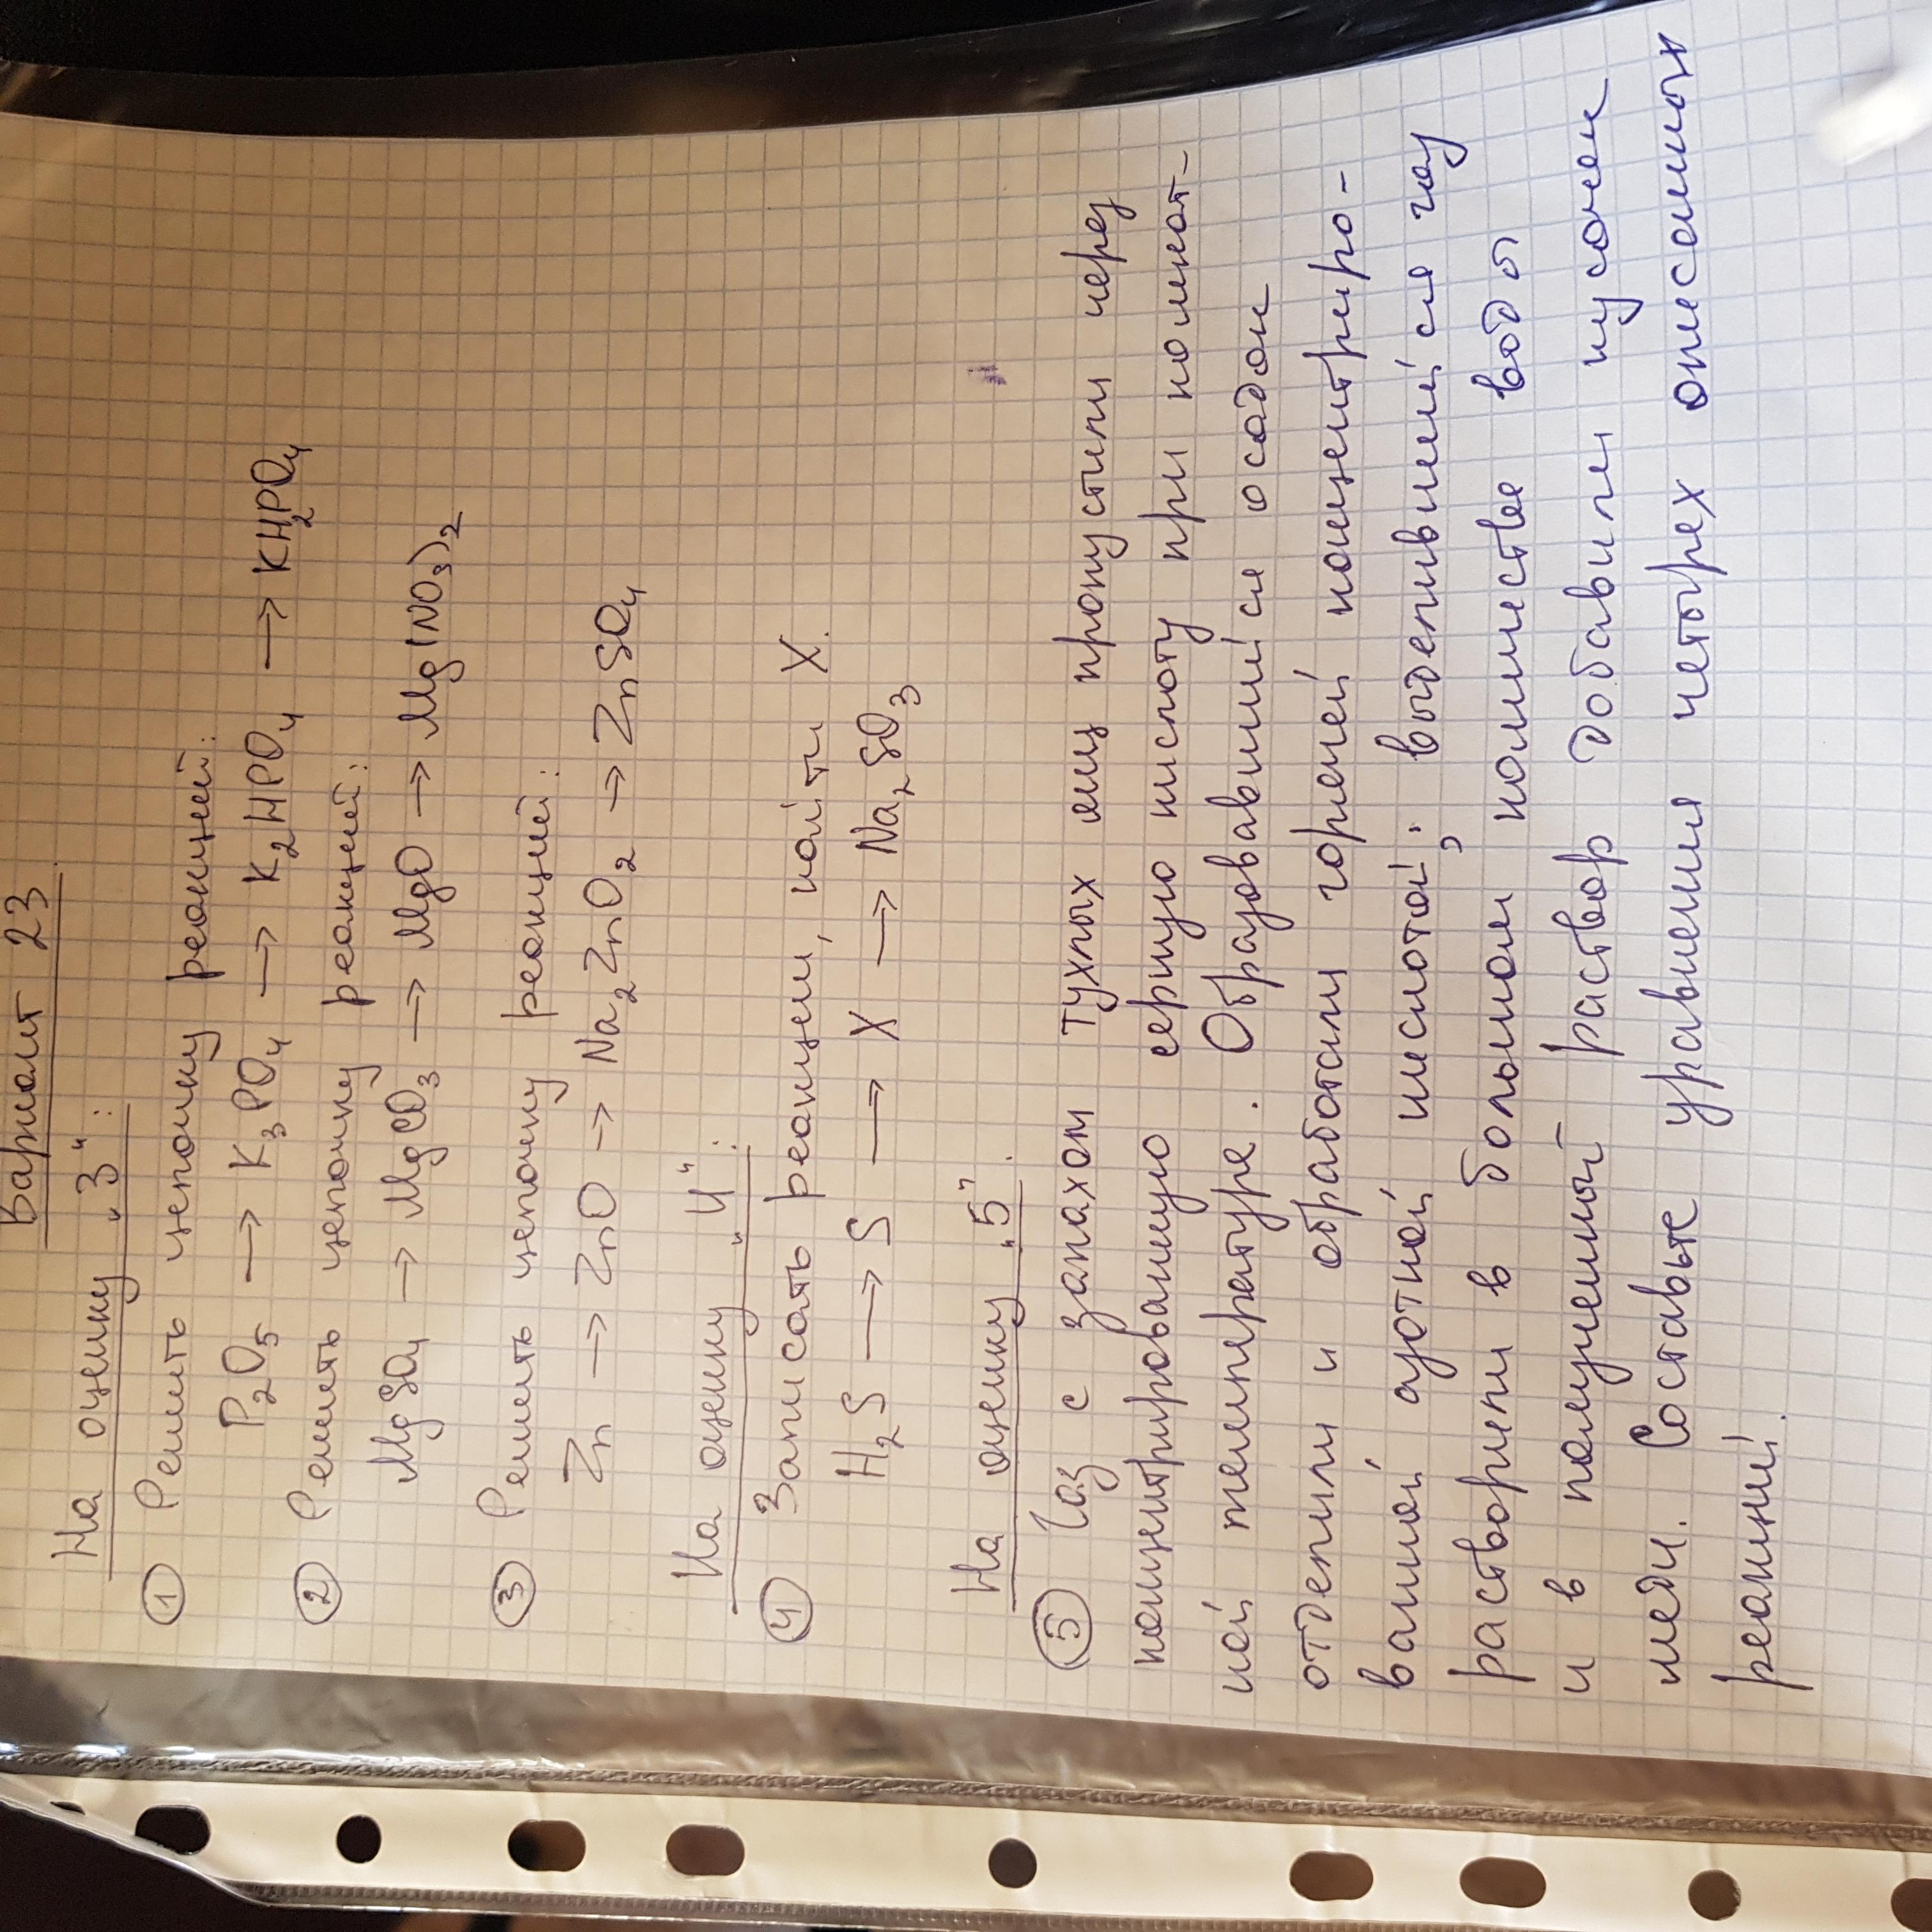 Вариант 23
На оценку "3":
① Решить цепочку реакций:
P₂O₅ → K₃PO₄ → K₂HPO₄ → KH₂PO₄
② Решить цепочку реакций:
MgSO₄ → MgCO₃ → MgO → Mg(NO₃)₂
③ Решить цепочку реакций:
Zn → ZnO → Na₂ZnO₂ → ZnSO₄
На оценку "4":
④ Записать реакции, найти X.
H₂S → S → X → Na₂SO₃
На оценку "5".
⑤ Газ с запахом тухлых яиц пропустили через
концентрированную серную кислоту при комнат-
ной температуре. Образовавшийся осадок
отделили и обработали горячей концентриро-
ванной азотной кислотой; выделившийся газ
растворили в большом количестве воды
и в полученный раствор добавили кусочек
меди. Составьте уравнения четырех описанных
реакций.